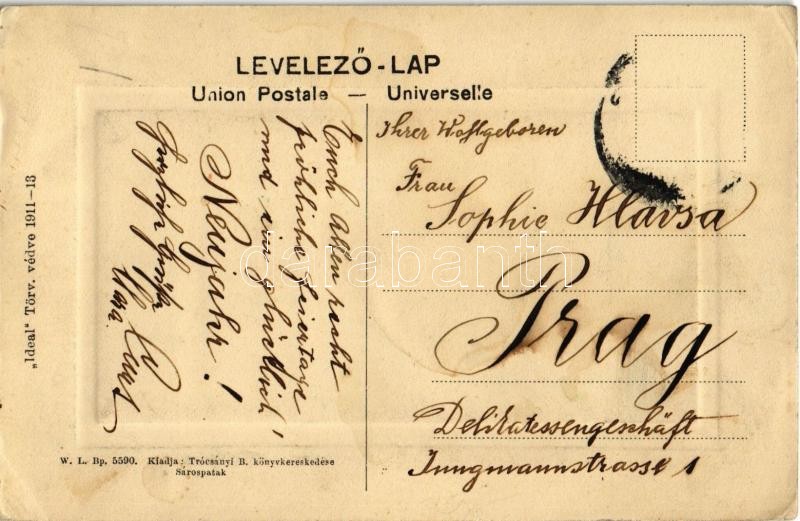 LEVELEZŐ-LAP
Union Postale — Universelle
Euch Allen recht
fröhliche Feiertage
und ein glücklich'
Neujahr!
Herzlichste Grüße
Ihrer Wohlgeboren
Frau
Sophie Hlavsa
Prag
Delikatessengeschäft
Jungmannstrasse 1
„Ideal“ Törv. védve 1911-13
W. L. Bp. 5590. Kiadja: Trócsányi B. könyvkereskedése
Sárospatak
darabanth